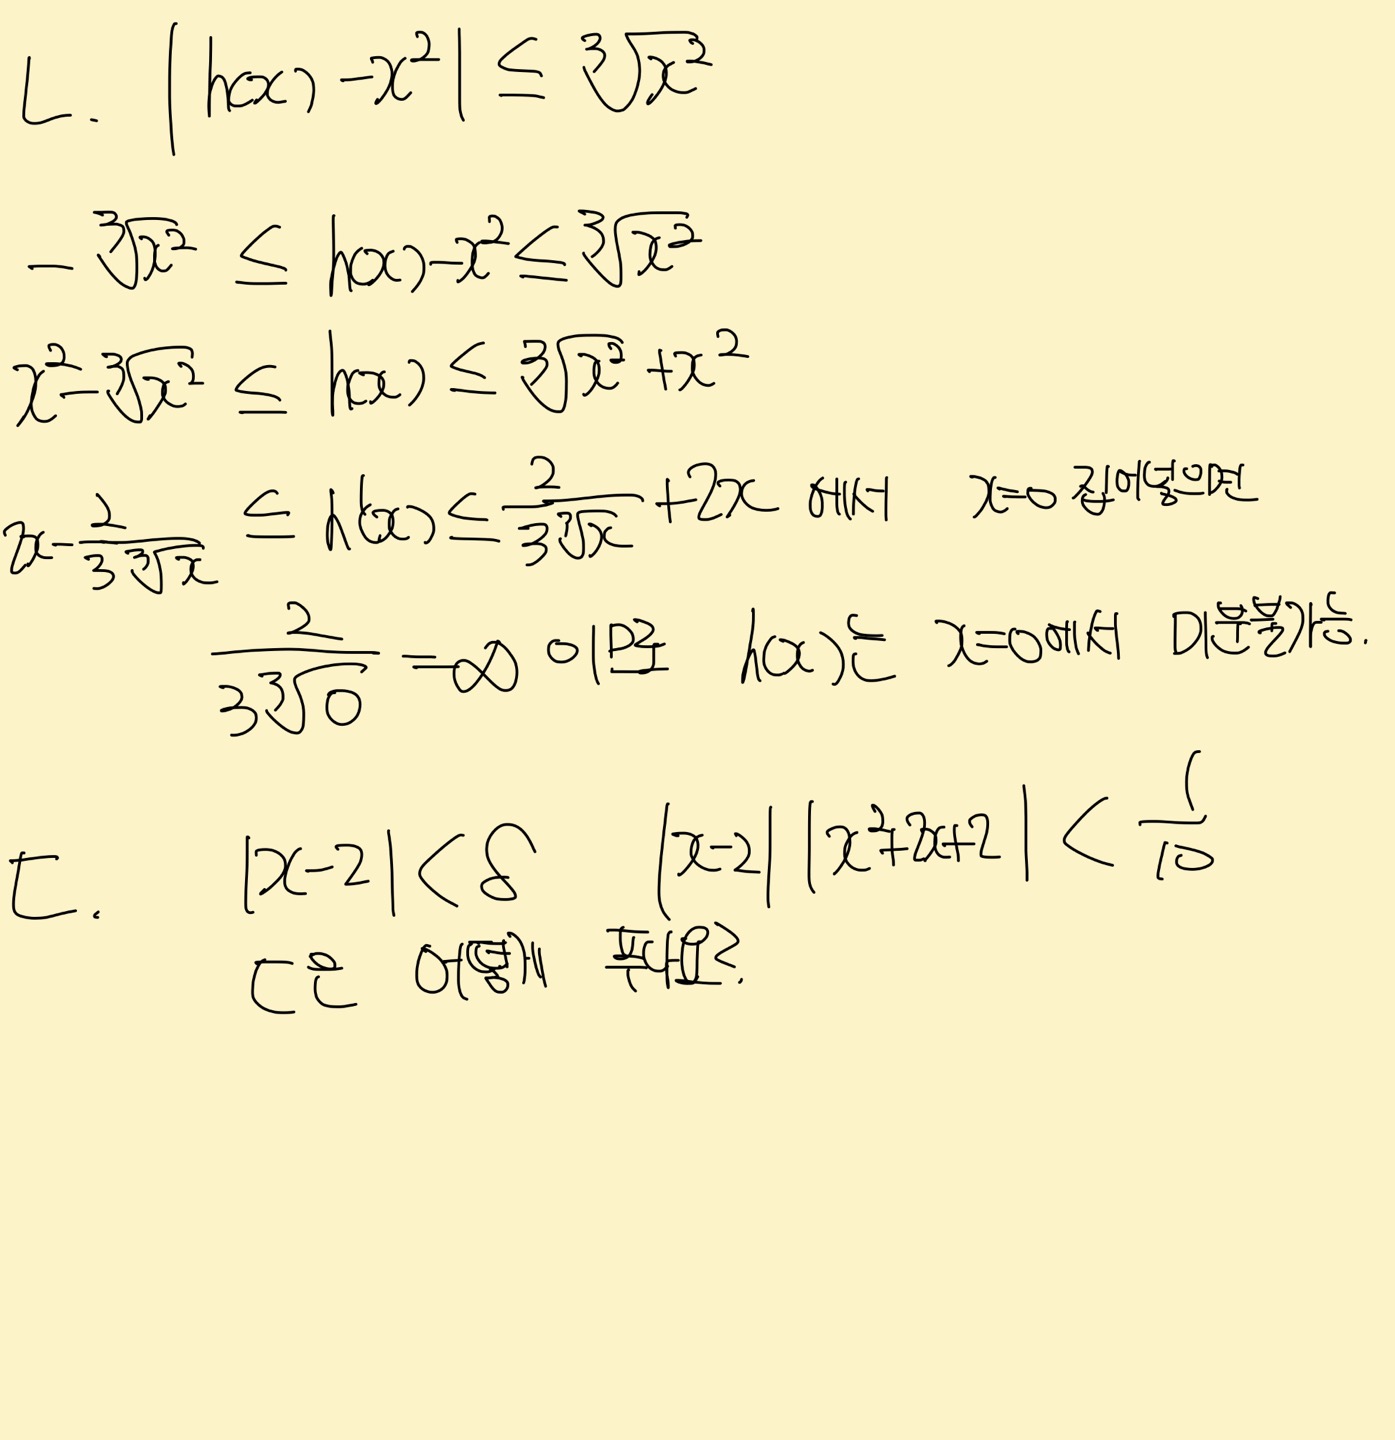 ㄴ. |h(x) - x²| ≤ ∛x²
- ∛x² ≤ h(x) - x² ≤ ∛x²
x² - ∛x² ≤ h(x) ≤ ∛x² + x²
2x - 2/(3∛x) ≤ h'(x) ≤ 2/(3∛x) + 2x 에서 x=0 집어넣으면
2/(3∛0) = ∞ 이므로 h(x)는 x=0에서 미분불가능.
ㄷ. |x-2| < δ |x-2| |x²+2x+2| < 1/10
ㄷ은 어떻게 푸나요?